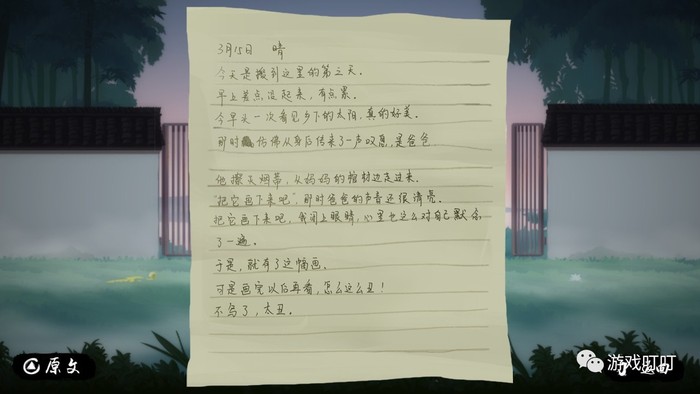 3月15日 晴
今天是搬到这里的第三天。
早上差点没起来，有点累。
今早头一次看见乡下的太阳，真的好美。
那时 仿佛从身后传来了一声叹息，是爸爸
他擦灭烟蒂，从妈妈的棺材边走过来。
“把它画下来吧”，那时爸爸的声音还很清亮。
把它画下来吧，我闭上眼睛，心里也这么对自己默念
了一遍。
于是，就有了这幅画。
可是画完以后再看，怎么这么丑！
不写了，太丑。
原文
游戏盯盯